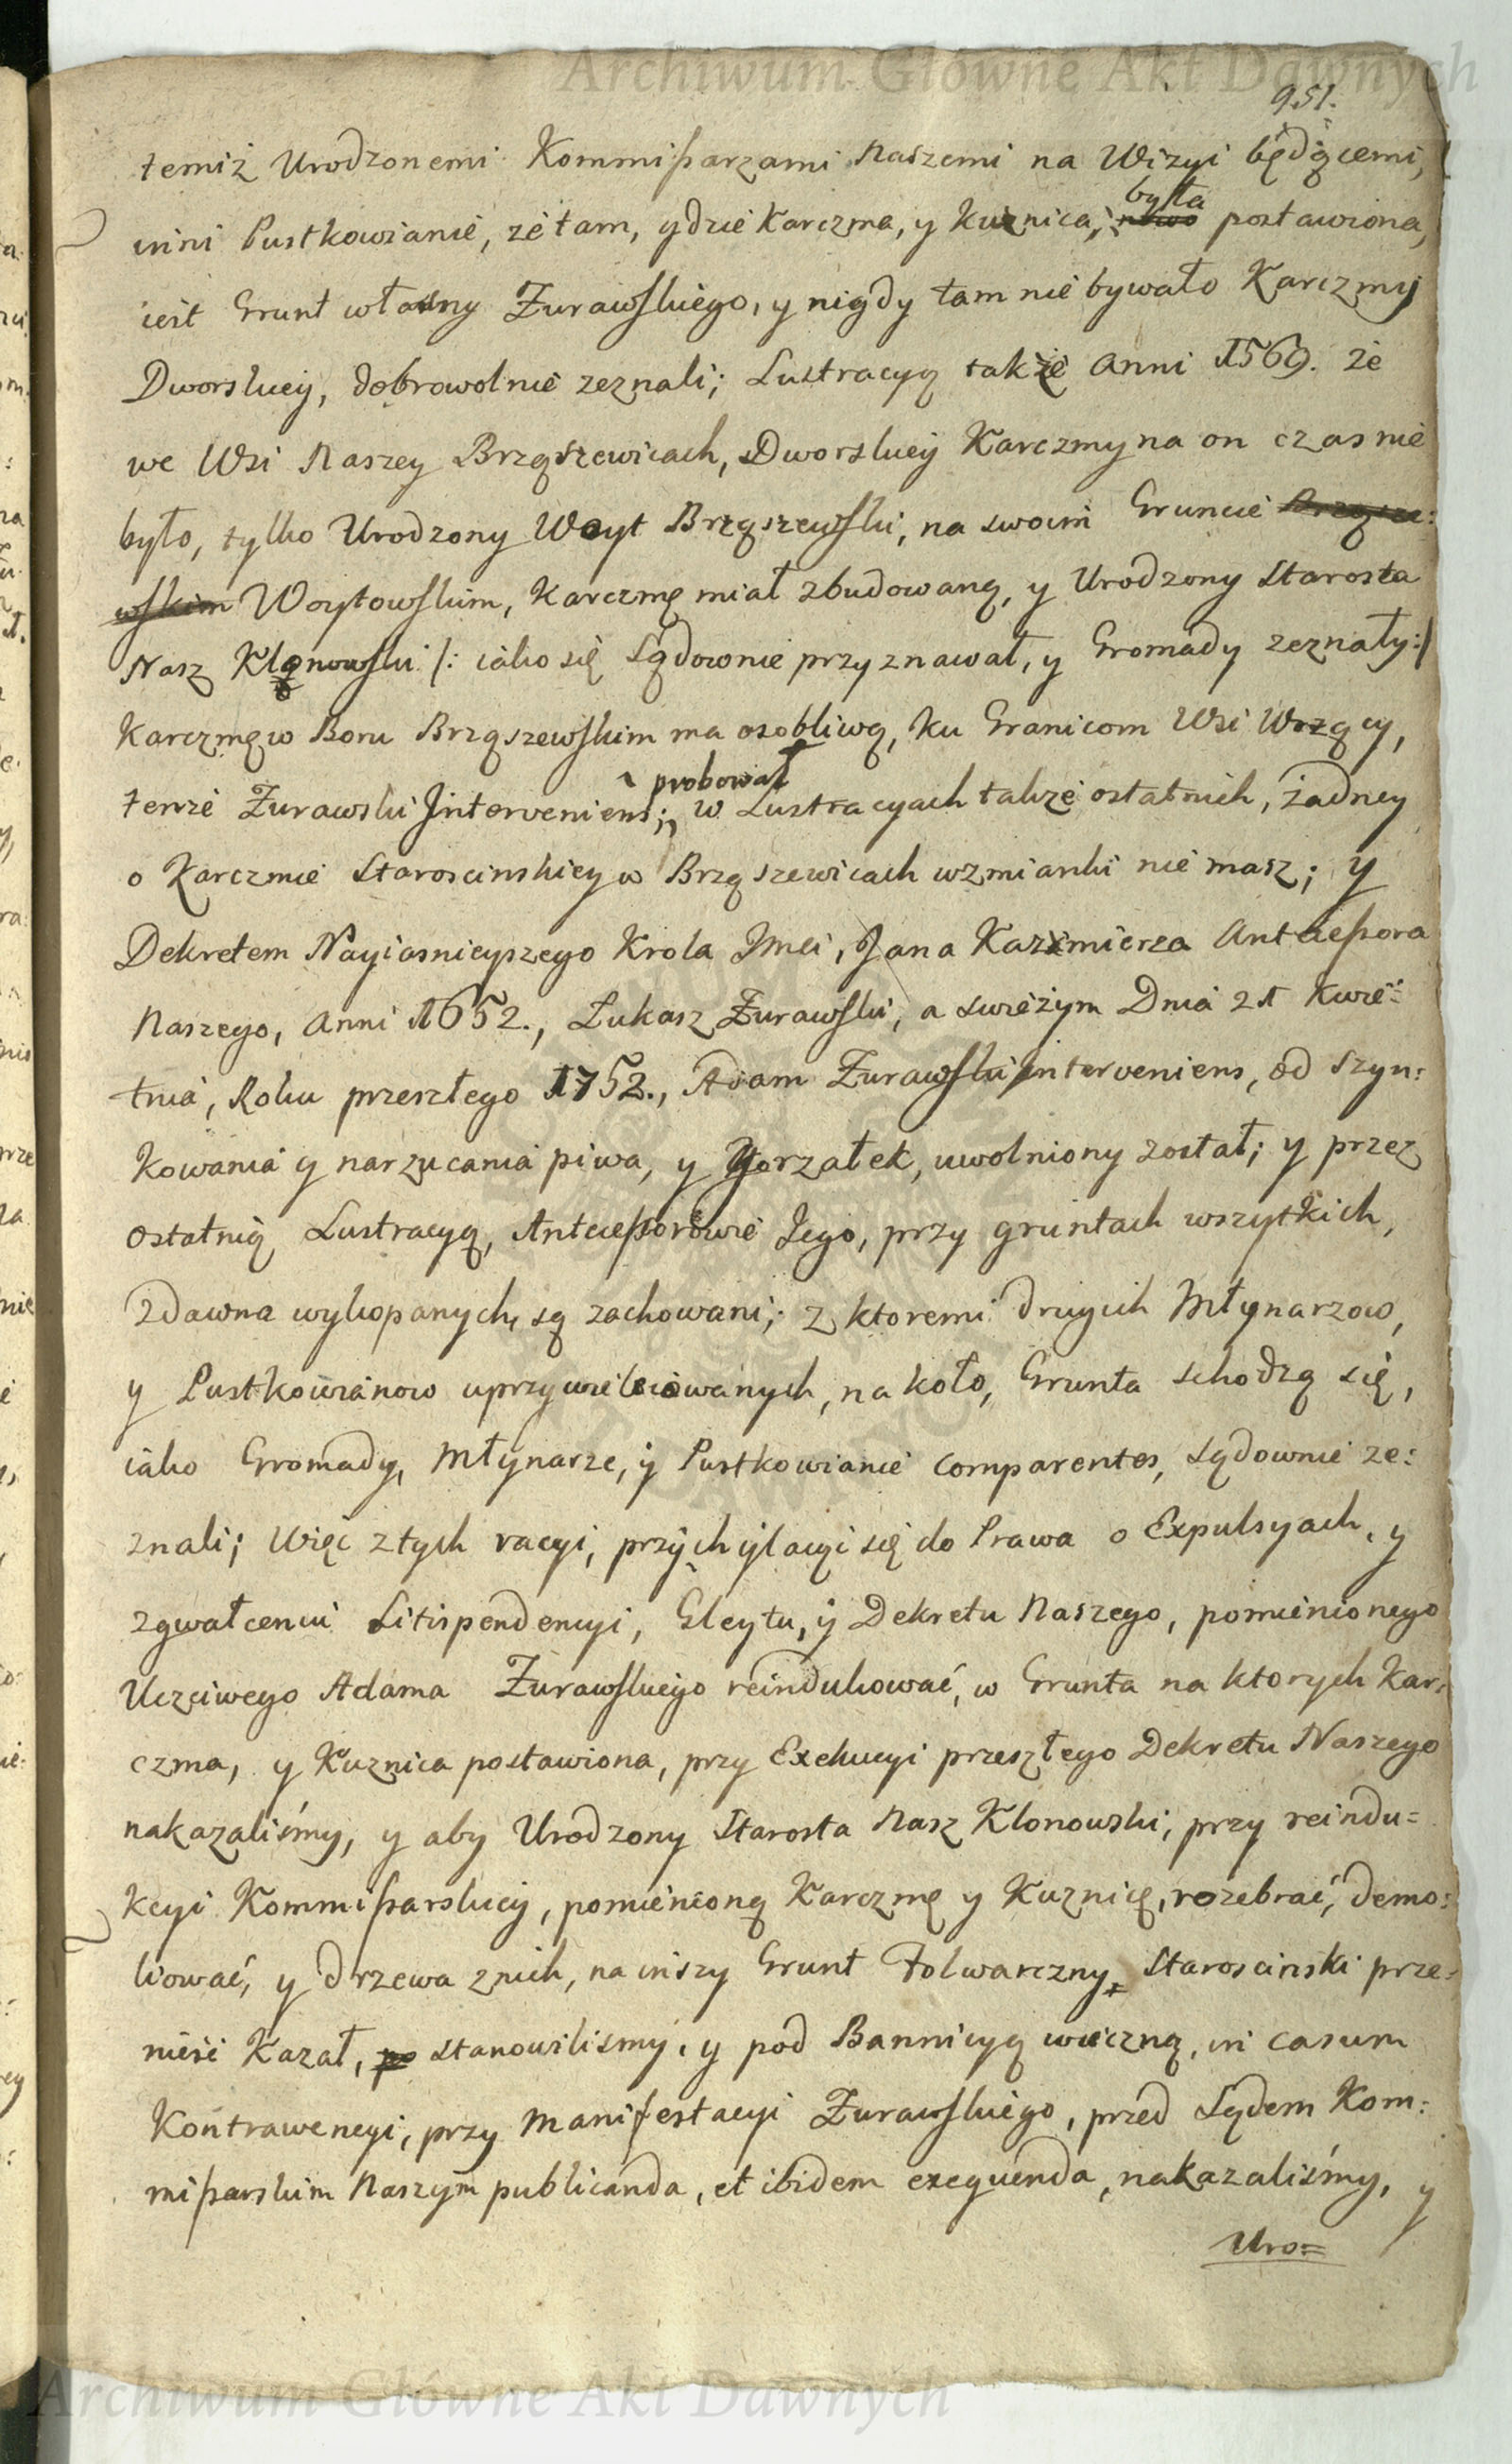 Archiwum Główne Akt Dawnych
951.
temiż Urodzonemi Kommißarzami Naszemi na Wizyi będącemi,
inni Pustkowianie, że tam, gdzie Karczma, y Kuznica, nowo była postawiona,
iest Grunt własny Zurawskiego, y nigdy tam nie bywało Karczmy
Dworskiey, dobrowolnie zeznali; Lustracyą także Anni 1569. że
we Wsi Naszey Brząszewicach, Dworskiey Karczmy na on czas nie
było, tylko Urodzony Woyt Brząszewski, na swoim Gruncie Brząsze:
wskim Woytowskim, Karczmę miał zbudowaną, y Urodzony Starosta
Nasz Klonowski /: iako się Sądownie przyznawał, y Gromady zeznały:/
Karczmę w Boru Brząszewskim ma osobliwą, ku Granicom Wsi Wrzący,
tenże Zurawski Interveniens; probował w Lustracyach także ostatnich, żadney
o Karczmie Staroscinskiey w Brząszewicach wzmianki nie masz; y
Dekretem Nayiasnieyszego Krola Jmci, Jana Kazimierza Anteceßora
Naszego, Anni 1652., Łukasz Zurawski, a swieżym Dnia 21 Kwie=
tnia, Roku przeszłego 1752., Adam Zurawski Interveniens, od szyn:
kowania y narzucania piwa, y Gorzałek, uwolniony został; y przez
ostatnią Lustracyą, Anteceßorowie Jego, przy gruntach wszytkich,
zdawna wykopanych, są zachowani; z ktoremi drugich Młynarzow,
y Pustkowianow uprzywileiowanych, na koło, Grunta schodzą się,
iako Gromady, Młynarze, y Pustkowianie comparentes, Sądownie ze:
znali; Więc z tych racyi, przychylaiąc się do Prawa o Expulsyach, y
zgwałceniu Litispendencyi, Gleytu, y Dekretu Naszego, pomienionego
Uczciwego Adama Zurawskiego reindukować, w Grunta na ktorych Kar:
czma, y Kuznica postawiona, przy Exekucyi przeszłego Dekretu Naszego
nakazaliśmy, y aby Urodzony Starosta Nasz Klonowski, przy reindu=
kcyi Kommißarskiey, pomienioną Karczmę y Kuznicę, rozebrać, demo:
liować, y drzewa z nich, na inszy Grunt Folwarczny Staroscinski prze=
nieść kazał, po stanowiliśmy, y pod Bannicyą wieczną, in casum
Kontrawencyi, przy Manifestacyi Zurawskiego, przed Sądem Kom:
mißarskim Naszym publicanda, et ibidem exequenda, nakazaliśmy, y
Uro=
Archiwum Główne Akt Dawnych